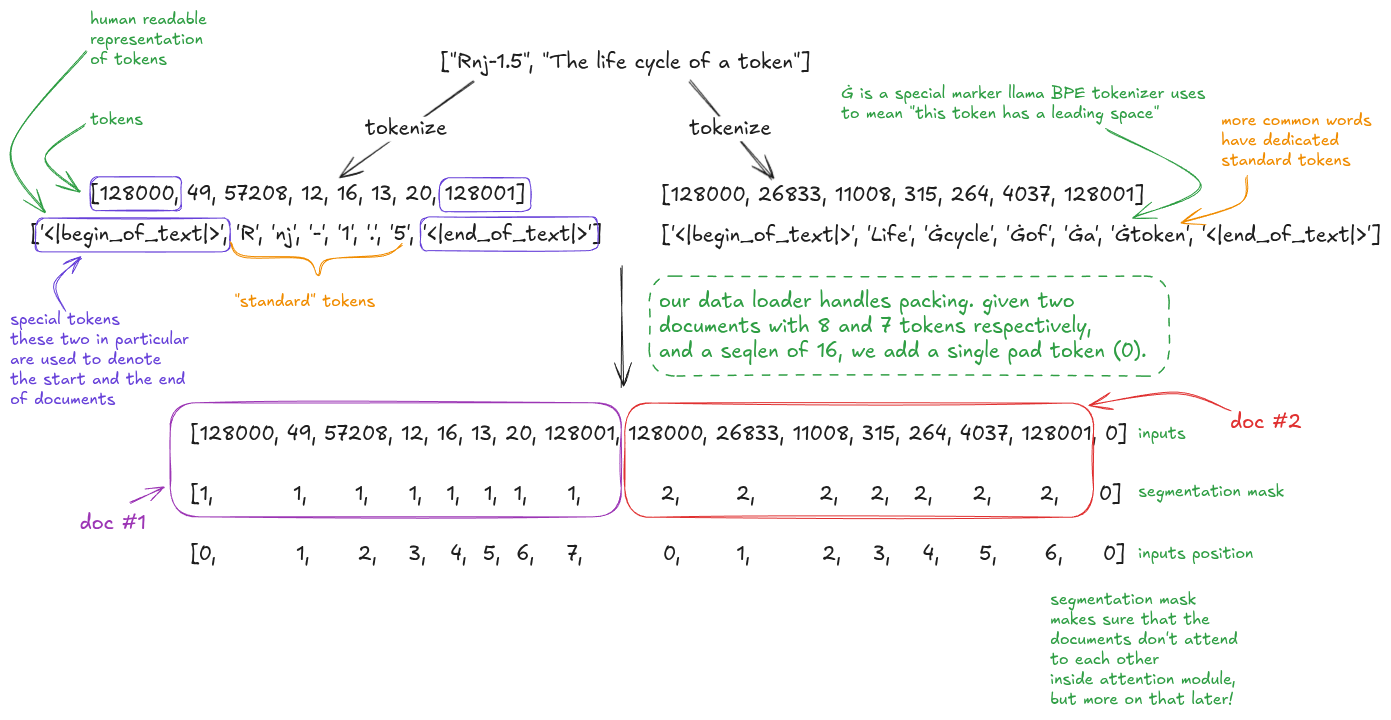 human readable
representation
of tokens
["Rnj-1.5", "The life cycle of a token"]
Ġ is a special marker llama BPE tokenizer uses
to mean "this token has a leading space"
tokens
tokenize
tokenize
more common words
have dedicated
standard tokens
[128000, 49, 57208, 12, 16, 13, 20, 128001]
[128000, 26833, 11008, 315, 264, 4037, 128001]
['<|begin_of_text|>', 'R', 'nj', '-', '1', '.', '5', '<|end_of_text|>']
['<|begin_of_text|>', 'Life', 'Ġcycle', 'Ġof', 'Ġa', 'Ġtoken', '<|end_of_text|>']
"standard" tokens
special tokens
these two in particular
are used to denote
the start and the end
of documents
our data loader handles packing. given two
documents with 8 and 7 tokens respectively,
and a seqlen of 16, we add a single pad token (0).
doc #2
[128000, 49, 57208, 12, 16, 13, 20, 128001, 128000, 26833, 11008, 315, 264, 4037, 128001, 0] inputs
[1, 1, 1, 1, 1, 1, 1, 1, 2, 2, 2, 2, 2, 2, 2, 0] segmentation mask
doc #1
[0, 1, 2, 3, 4, 5, 6, 7, 0, 1, 2, 3, 4, 5, 6, 0] inputs position
segmentation mask
makes sure that the
documents don't attend
to each other
inside attention module,
but more on that later!